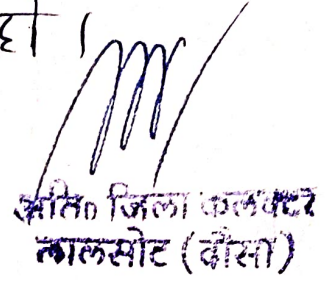 हो ।
अति० जिला कलक्टर
लालसोट (दौसा)